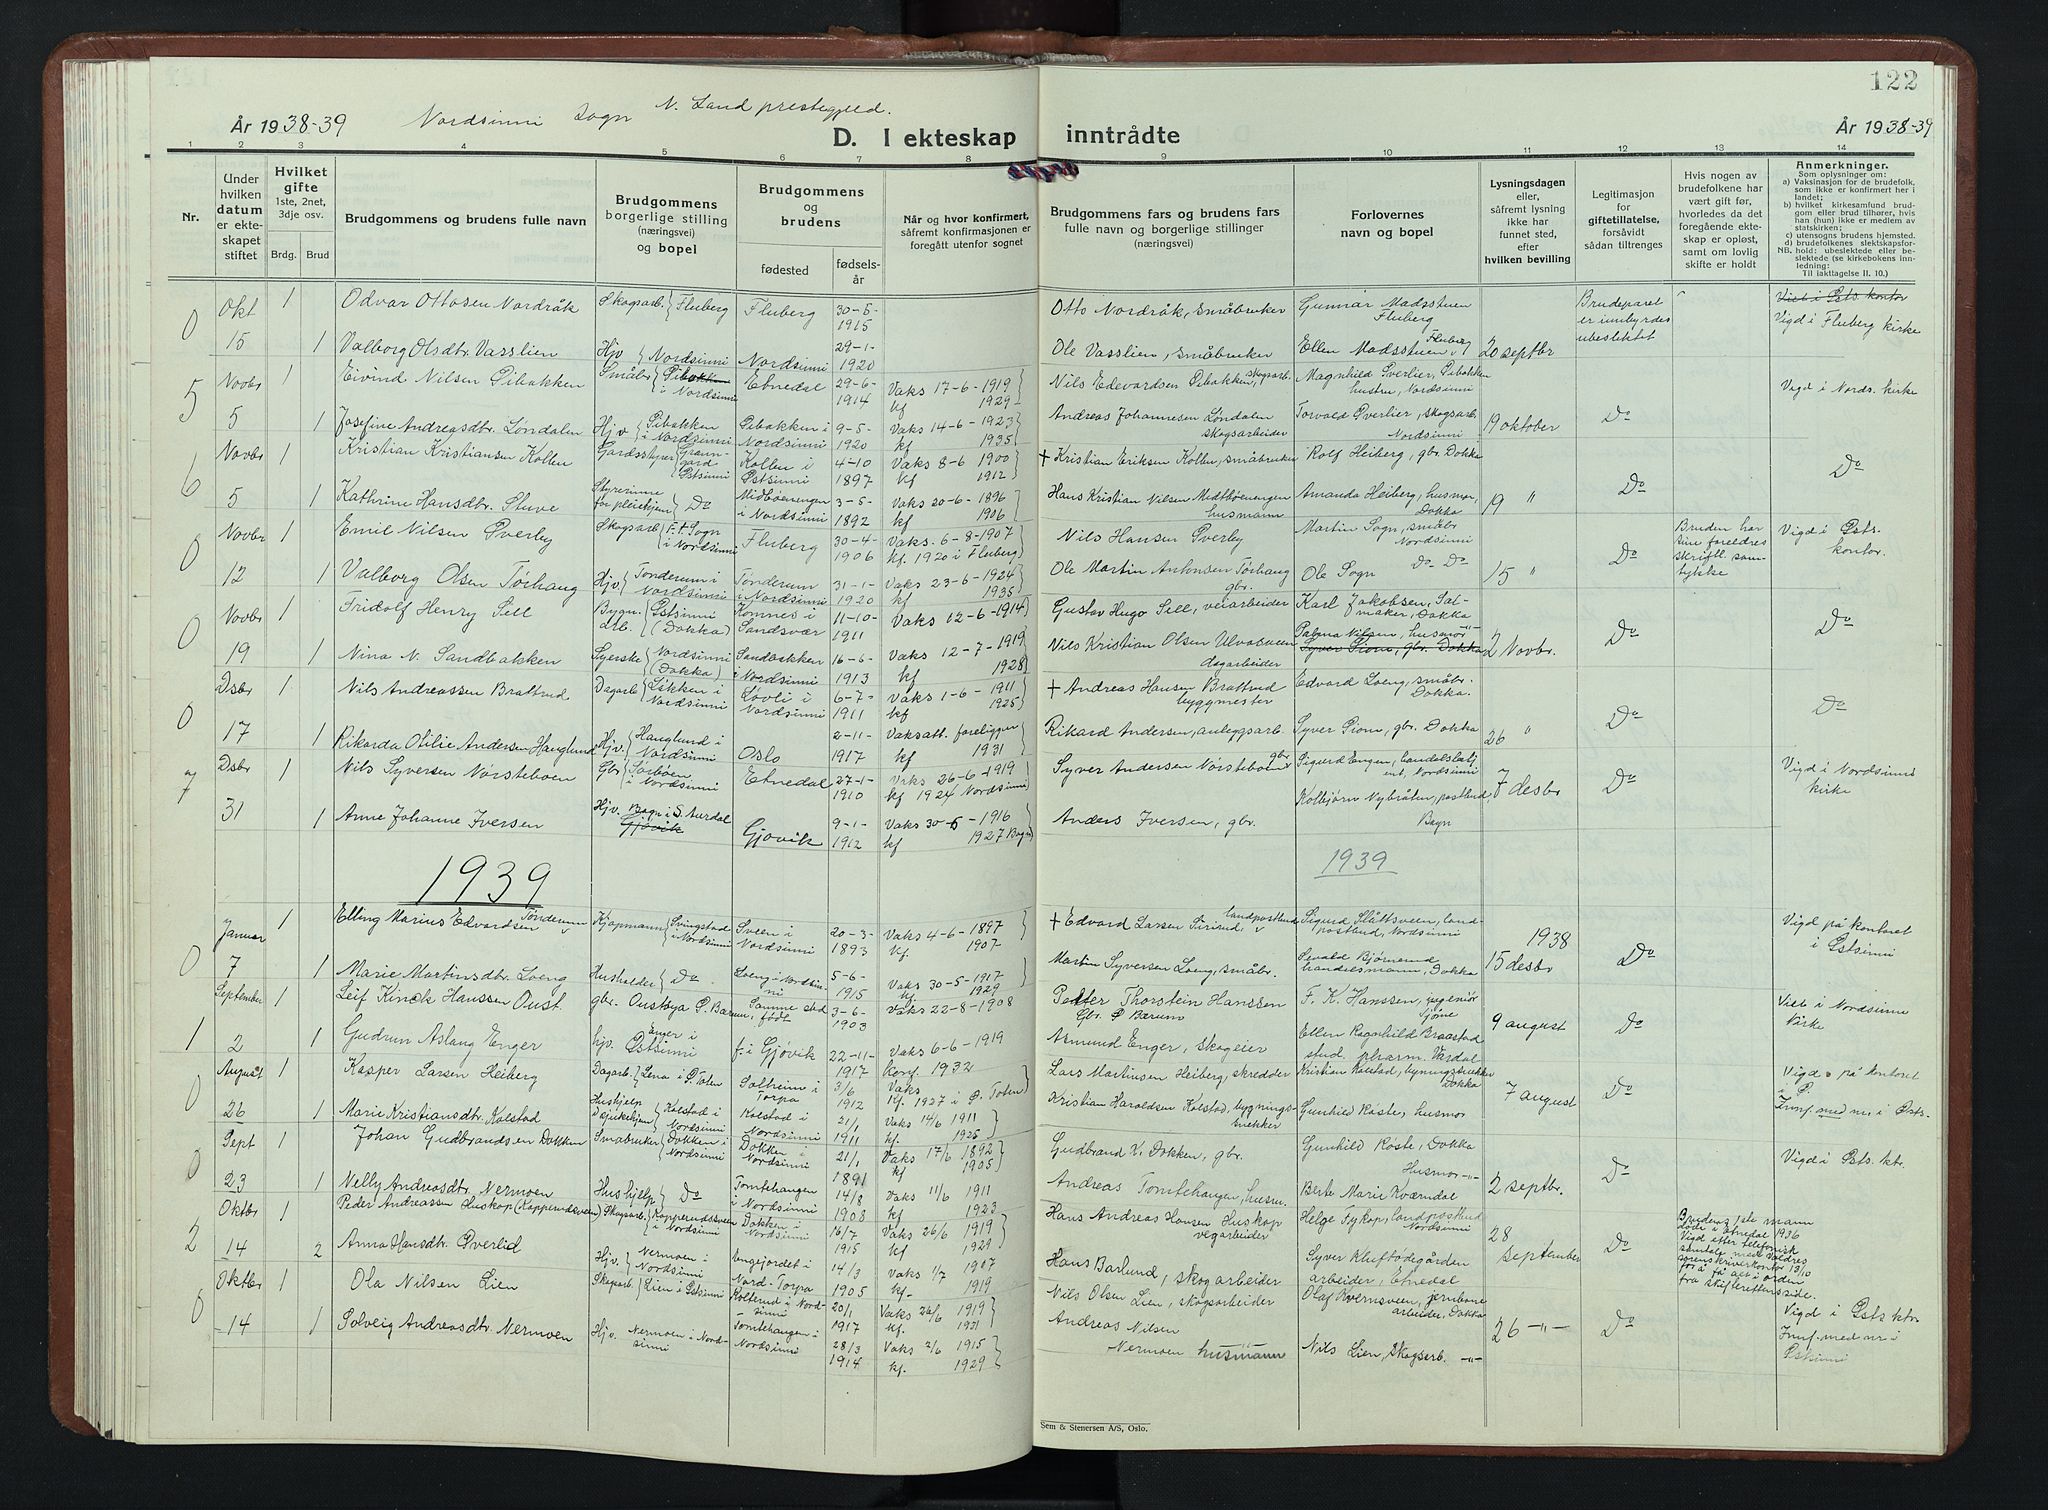 122
År 1938-39 Nordsinni Sogn N. Land prestegjeld.
D. I ekteskap inntrådte
År 1938-39
1 2 3 4 5 6 7 8 9 10 11 12 13 14
Nr.
Under hvilken datum er ekteskapet stiftet
Hvilket gifte 1ste, 2net, 3dje osv.
Brdg. Brud
Brudgommens og brudens fulle navn
Brudgommens borgerlige stilling (næringsvei) og bopel
Brudgommens og brudens
fødested
fødselsår
Når og hvor konfirmert, såfremt konfirmasjonen er foregått utenfor sognet
Brudgommens fars og brudens fars fulle navn og borgerlige stillinger (næringsvei)
Forlovernes navn og bopel
Lysningsdagen eller, såfremt lysning ikke har funnet sted, efter hvilken bevilling
Legitimasjon for giftetillatelse, forsåvidt sådan tiltrenges
Hvis nogen av brudefolkene har vært gift før, hvorledes da det foregående ekteskap er opløst, samt om lovlig skifte er holdt
Anmerkninger.
Som oplysninger om:
a) Vaksinasjon for de brudefolk, som ikke er konfirmert her i landet;
b) hvilket kirkesamfund brudgom eller brud tilhører, hvis han (hun) ikke er medlem av statskirken;
c) utensogns brudens hjemsted.
d) brudefolkenes slektskapsforhold: ubeslektede eller beslektede (se kirkebokens innledning:
NB.
Til iakttagelse II. 10.)
0 Okt 1 Odvar Ottosen Nordråk Skogsarb. Fluberg Fluberg 30-5-1915 Otto Nordråk, småbruker Gunnar Madsstuen Fluberg Brudeparet er innbyrdes ubeslektet Viet i Østs. kontor Vigd i Fluberg kirke
15 1 Valborg Olsdtr. Vasslien Hjv Nordsinni Nordsinni 29-1-1920 Ole Vasslien, småbruker Ellen Madsstuen Fluberg 20 septbr
5 Novbr 1 Eivind Nilsen Pibakken Småbr. Pibakken i Nordsinni Etnedal 29-6-1914 Vaks 17-6-1919 kf 1929 Nils Edevardsen Pibakken, skogsarb. Magnhild Øverlier, Pibakken hustru, Nordsinni Vigd i Nords. kirke
5 1 Josefine Andreasdtr. Løndalen Hjv Pibakken i Nordsinni Pibakken i Nordsinni 9-5-1920 Vaks 14-6-1923 kf 1935 Andreas Johannesen Løndalen skogsarbeider Torvald Øverlier, skogsarb. Nordsinni 19 oktober Do
6 Novbr 1 Kristian Kristiansen Kollen Gårdsstyrer Østsinni Kollen i Østsinni 4-10 1897 Vaks 8-6 1900 kf 1912 + Kristian Eriksen Kollen, småbruker Rolf Heiberg, gbr. Dokka Do
5 1 Kathrine Hansdtr. Stuve Styrerinne for pleiehjem Do Midbøenengen i Nordsinni 3-5-1892 Vaks 20-6-1896 kf 1906 Hans Kristian Nilsen Midtbøenengen husmann Amanda Heiberg, husmor, Dokka 19 " Do
0 Novbr 1 Emil Nilsen Øverby Skogsarb. F.t. Sogn i Nordsinni Fluberg 30-4-1906 Vaks. 6-8-1907 kf. 1920 i Fluberg Nils Hansen Øverby Martin Sogn, småbr Nordsinni Bruden har sine foreldres skriftl. samtykke Vigd i Østs. kontor.
12 1 Valborg Olsen Tørhaug Hjv Tønderum i Nordsinni Tønderum i Nordsinni 31-1-1920 Vaks 23-6-1924 kf 1935 Ole Martin Antonsen Tørhaug gbr. Ole Sogn Do Do 15 " Do
0 Novbr 1 Fridolf Henry Sell Bygn. arb. Østsinni (Dokka) Komnes i Sandsvær 11-10-1911 Vaks 12-6-1914 Gustav Hugo Sell, veiarbeider Karl Jakobsen, Salmaker, Dokka Do
19 1 Nina N. Sandbakken Syerske Nordsinni (Dokka) Sandbakken i Nordsinni 16-6-1913 Vaks 12-7-1919 kf 1928 Nils Kristian Olsen Ulvasveen dagarbeider Palma Nilsen, husmor -"- Syver Siom, gbr. Dokka 2 Novbr. Do
0 Dsbr 1 Nils Andreassen Brattrud Dagarb. Likken i Nordsinni Løvli i Nordsinni 6-7-1911 Vaks 1-6-1911 kf 1925 + Andreas Hansen Brattrud byggmester Edvard Loeng, småbr. Dokka. Do
17 1 Rikarda Otilie Andersen Hauglund Hjv. Hauglund i Nordsinni Oslo 2-11-1917 Vaksatt. foreligger kf 1931 Rikard Andersen, anleggsarb. Syver Siom, gbr. Dokka 26 " Do
7 Dsbr 1 Nils Syversen Nørsteboen Gbr. Sørbøen i Nordsinni Etnedal 27-1-1910 Vaks 26-6-1919 kf 1924 Nordsinni Syver Andersen Nørstebøen gbr Sigurd Engen, handelsbetjent, Nordsinni Vigd i Nordsinni kirke
31 1 Anne Johanne Iversen Hjv. Bagn i S. Aurdal Gjøvik Gjøvik 9-1-1912 Vaks 30-6-1916 kf 1927 Bagn Anders Iversen, gbr. Kolbjørn Nybråten, postbud, Bagn 7 desbr Do
1939
1939
0 Januar 1 Elling Marius Edvardsen Tønderum Kjøpmann Svingstad i Nordsinni Sveen i Nordsinni 20-3-1893 Vaks 4-6-1897 kf. 1907 + Edvard Larsen Sirirud, landpostbud Sigurd Slåttsveen, landpostbud, Nordsinni 1938 Vigd på kontoret i Østsinni
7 1 Marie Martinsdtr. Loeng Husholder Do Loeng i Nordsinni 5-6-1915 Vaks 30-5-1917 kf. 1929 Martin Syversen Loeng, småbr. Sevald Bjørnerud handelsmann, Dokka 15 desbr Do
1 September 1 Leif Kinck Hanssen Oust. gbr. Oustøya P. Bærum, Samme sted født 3-6-1903 Vaks 22-8-1908 Petter Thorstein Hanssen Gbr. P Bærum F. K. Hanssen, ingeniør Tjøme Viet i Nordsinne Kirke
2 1 Gudrun Aslaug Enger hjv. Enger i Østsinni f. i Gjøvik 22-11-1917 Vaks 6-6-1919 konf. 1932 Asmund Enger, skogeier Ellen Ragnhild Braastad stud. pharm. Vardal 9 august Do
0 August 1 Kasper Larsen Heiberg Dagarb. Lena i Ø. Toten Solheim i Torpa 3/6 1912 Vaks kf. 1927 i Ø. Toten Lars Martinsen Heiberg, skredder Kristian Kolstad, bygningssnekker Dokka Vigd på kontoret i Ø.
26 1 Marie Kristiansdtr. Kolstad Hushjelp Kolstad i Nordsinni Kolstad i Nordsinni 21/1 1911 Vaks 14/6 1911 kf. 1925 Kristian Haroldsen Kolstad, bygningssnekker Gunhild Røste, husmor 7 august Do Innf. med nr. i Østs.
0 Sept 1 Johan Gudbrandsen Dokken Småbruker Dokken i Nordsinni Dokken i Nordsinni 21/1 1891 Vaks 17/6 1892 kf 1905 Gudbrand K. Dokken, gbr. Gunhild Røste, Dokka Husmor -"- Vigd i Østs. ktr.
23 1 Nelly Andreasdtr. Nermoen Hushjelp Do Tomtehaugen i Nordsinni 14/8 1908 Vaks 11/6 1911 kf 1923 Andreas Tomtehaugen, husm. Berte Marie Kværndal 2 septbr. Do
2 Oktbr 1 Peder Andreassen Huskop (Kopperudsveen) Skogsarb. Kopperudsveen i Nordsinni Dokken i Nordsinni 16/7 1915 Vaks 26/6 1919 kf 1929 Hans Andreas Hansen Huskop vegarbeider Helge Fykop, landpostbud Nordsinni 28 september Do Brudens 1ste mann døde i Etnedal 1936 Vigd efter telefonisk samtale med Valdres sorenskriverkontor 13/10 for å få alt i orden fra skifterettens side.
14 2 Anna Hansdtr. Øverlid Hjv. Nermoen i Nordsinni Engejordet i Nord-Torpa 14/3 1905 Vaks 1/7 1907 kf. 1919 Hans Barlund, skogarbeider Syver Kleftødegården arbeider, Etnedal
0 Oktbr 1 Ola Nilsen Lien Skogarb. Lien i Østsinni Kolterud i Nordsinni 20/1 1917 Vaks 26/6 1919 kf. 1931 Nils Olsen Lien, skogsarbeider Olaf Kvernsveen, jernbanearbeider, Dokka Vigd i Østs ktr
14 1 Solveig Andreasdtr. Nermoen Hjv. Nermoen i Nordsinni Tomtehaugen i Nordsinni 28/3 1914 Vaks 2/6 1915 kf. 1929 Andreas Nilsen Nermoen husmann Nils Lien, Skogsarb. -"- 26 -"- Do Innf. med nr i Østsinni
Sem & Stenersen A/S, Oslo.